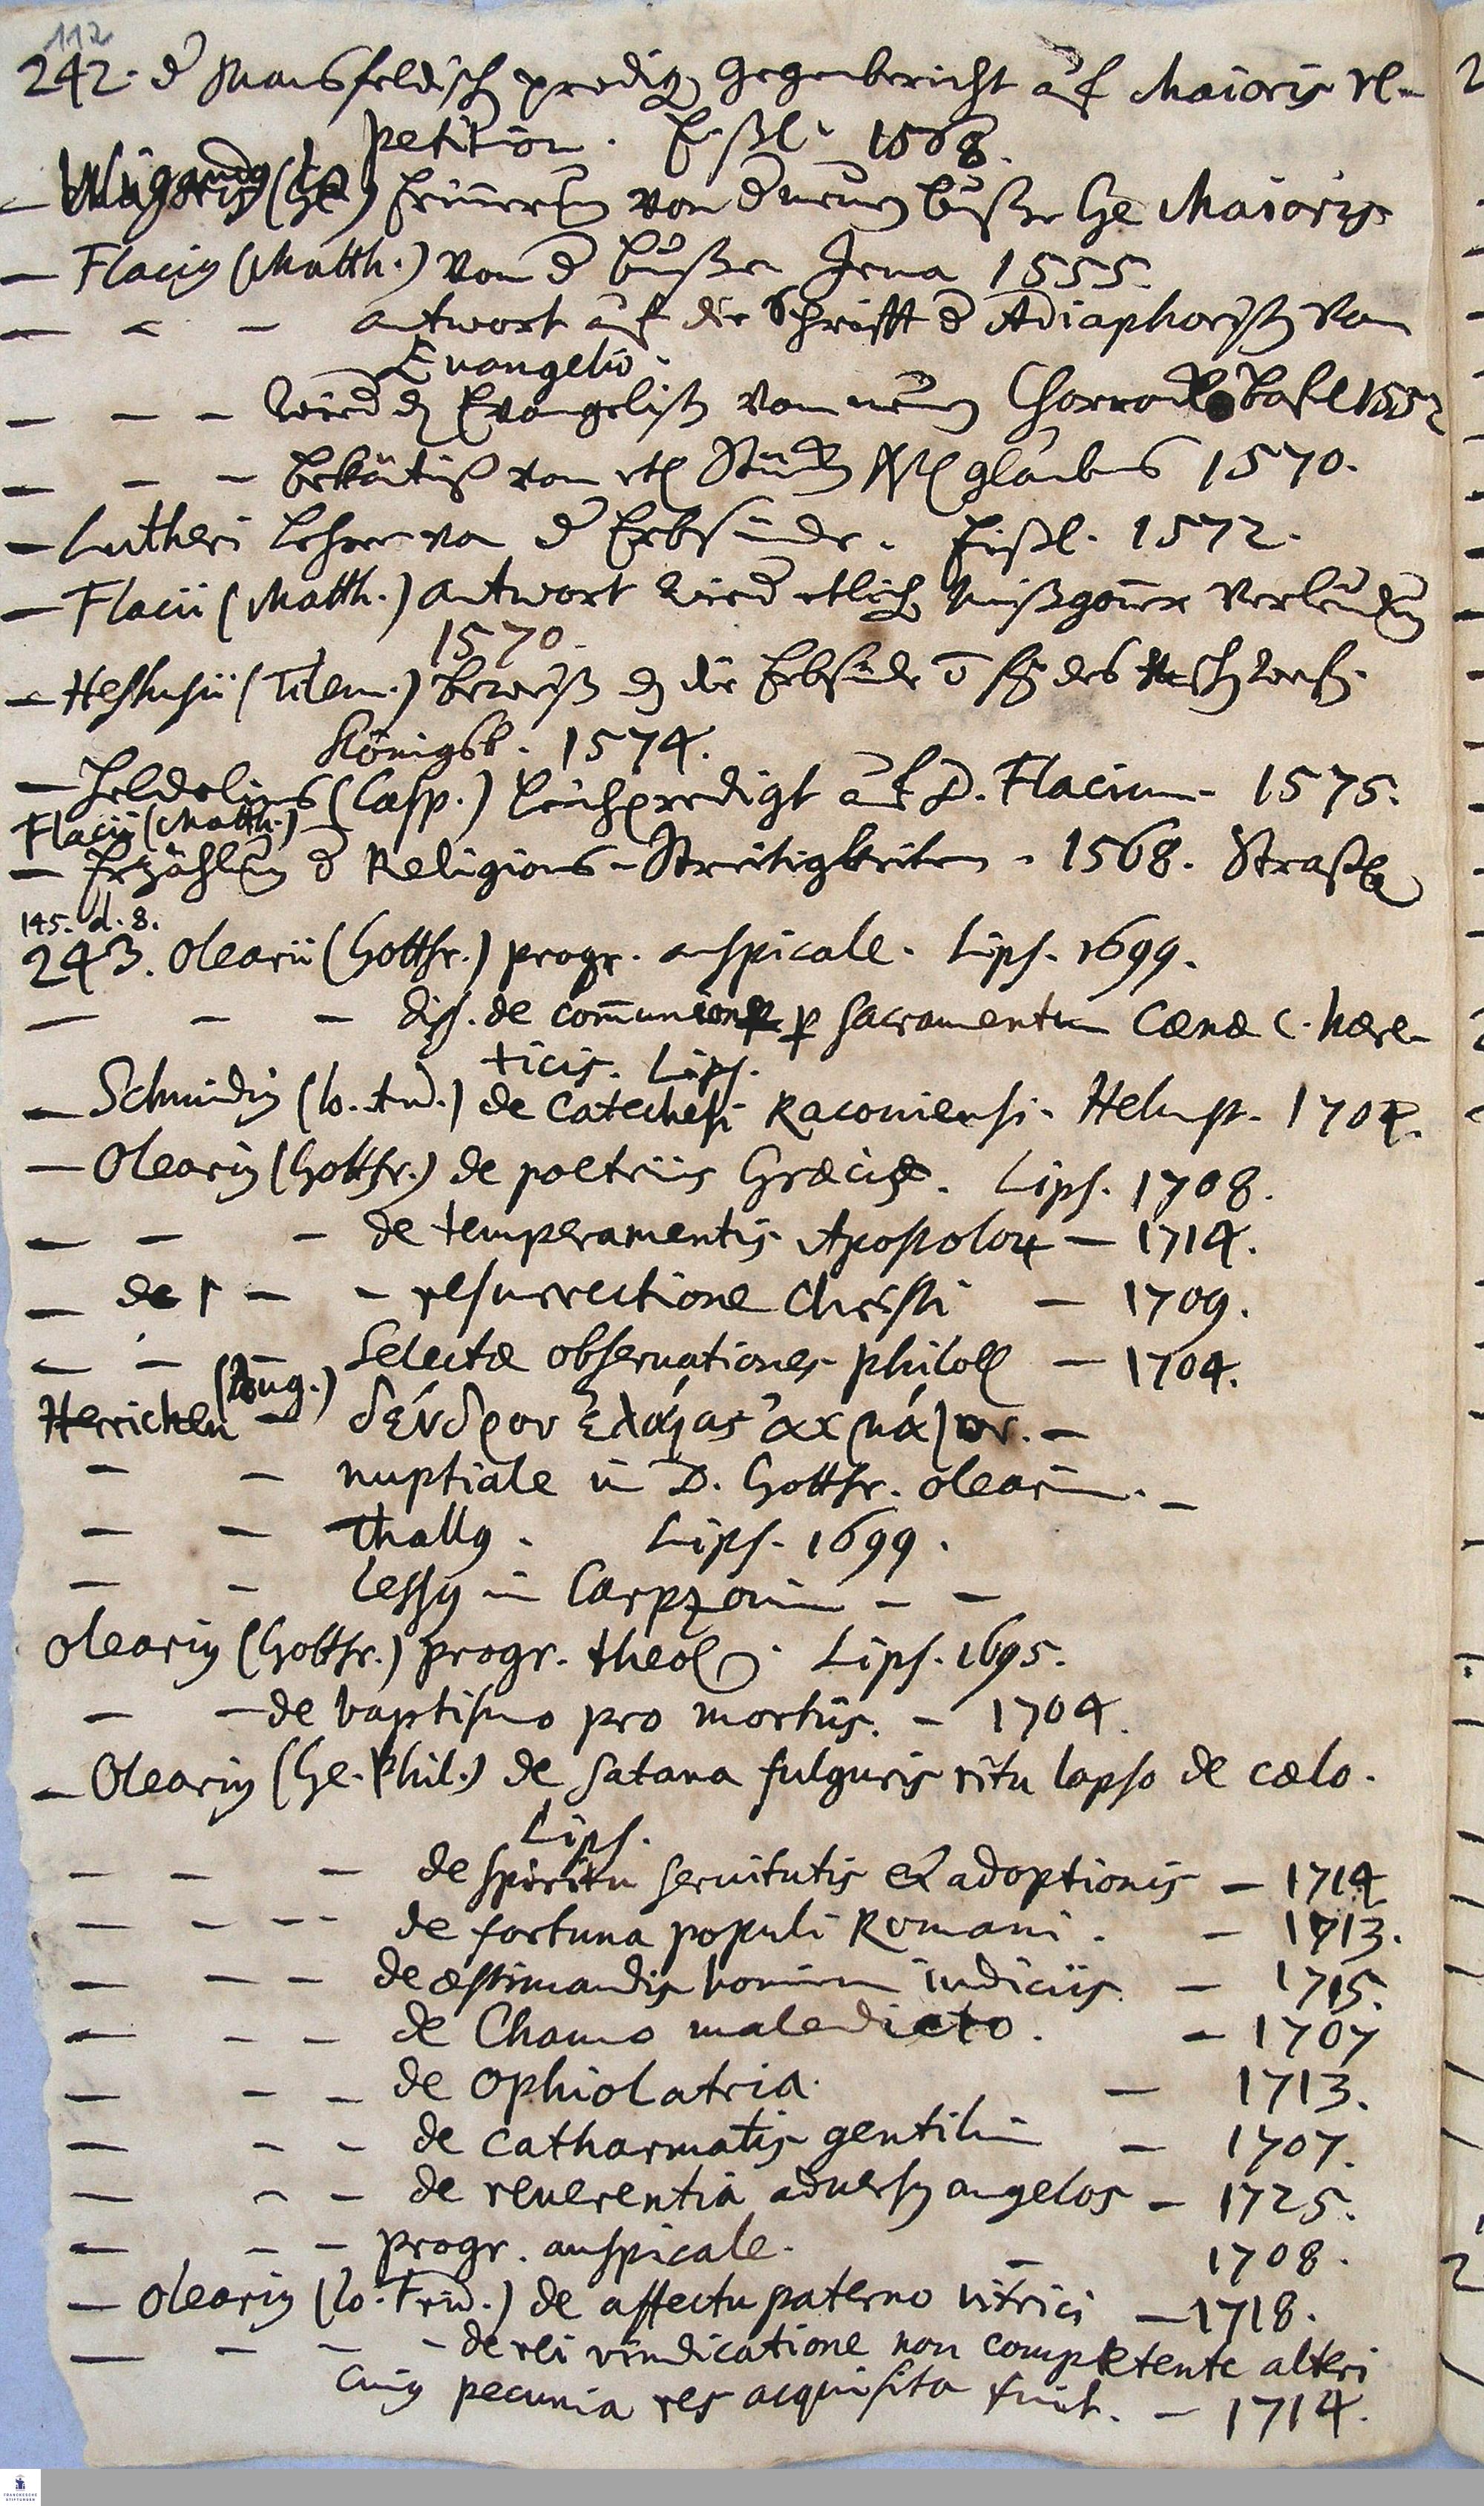 112
242. d Mansfeldisch predig gegenbericht auf Maioris re-
petition. Eißl. 1568.
- Wigandg (Io) Erinnerung von d neuen buße Ge Maioris
- Flaciy (Matth.) von d buße Jena 1555.
- - - antwort auf die Schrifft d Adiaphorist von
Evangelio.
- - - wied d Evangelist vom neuen Chorrock Basel 1552
- - - bekäntniß von etl stück glaubens 1570.
- Lutheri Lehre von d Erbsünde. Eißl. 1572.
- Flacii (Matth.) antwort wied etlich mißgoner verleumdung
1570.
- Heshusii (Tilem.) beweiß die Erbsünde des wesen.
Königsb. 1574.
- Heldelinus (Casp.) leichpredigt auf D. Flacium - 1575.
Flacii (Matth.)
- Erzählung d Religions-Streitigkeiten - 1568. Straßb
145. d. 8.
243. Olearii (Gottfr.) progr. auspicale. Lips. 1699.
- - - diss. de comunione p sacramentum Cænæ c. hære-
ticis. Lips.
- Schmidiy (Io. And.) de Catechesi Racoviensi. Helmst. 1707.
- Oleariy (Gottfr.) de poetriis Græcis. Lips. 1708.
- - - de temperamentis Apostolor - 1714.
- de r - - resurrectione Christi - 1709.
- - - Selectæ observationes philoll - 1704.
(Aug.)
Herrichen - δένδρον ἐλαίας ἀκμάζον. -
- - nuptiale in D. Gottfr. Olearium. -
- - Thally. Lips. 1699.
- - lessy in Carpzovium - -
Oleariy (Gottfr.) progr. theol. Lips. 1695.
- - de baptismo pro mortuis. - 1704.
- Oleariy (Ge. Phil.) de Satana fulguris ritu lapso de cælo.
Lips.
- - - de spiritu servitutis & adoptionis - 1714
- - - - de fortuna populi Romani. - 1713.
- - - de æstimandis hominum iudiciis - 1715.
- - - de Chamo maledicto. - 1707
- - - de Ophiolatria. - 1713.
- - - de catharmatis gentilium - 1707.
- - - de reverentia adversy angelos - 1725.
- - - progr. auspicale. - 1708.
- Oleariy (Io. Frid.) de affectu paterno vitrici - 1718.
- - - - de rei vindicatione non competente alteri
cuiy pecunia res acquisita fuit. - 1714.
FRANCKESCHE
STIFTUNGEN